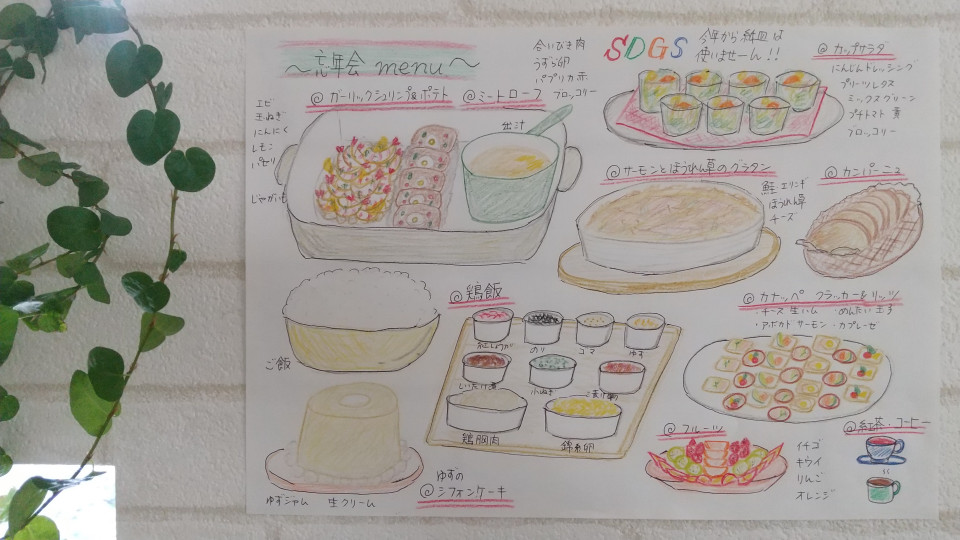 〜忘年会 menu〜
合いびき肉
うずら卵
パプリカ 赤
ブロッコリー
SDGs
今年から紙皿は
使いませーん!!
@カップサラダ
にんじんドレッシング
プリーツレタス
ミックスグリーン
プチトマト 黄
ブロッコリー
@ガーリックシュリンプ&ポテト
@ミートローフ
エビ
玉ねぎ
にんにく
レモン
パセリ
じゃがいも
出汁
@サーモンとほうれん草のグラタン
鮭 エリンギ
ほうれん草
チーズ
@カンパーニュ
ご飯
@鶏飯
紅しょうが
のり
ゴマ
ゆず
しいたけ煮
小ねぎ
鶏胸肉
錦糸卵
@カナッペ クラッカー&リッツ
・チーズ 生ハム ・めんたい玉子
・アボカドサーモン ・カプレーゼ
@フルーツ
イチゴ
キウイ
りんご
オレンジ
@紅茶・コーヒー
ゆずジャム
生クリーム
ゆずの
@シフォンケーキ